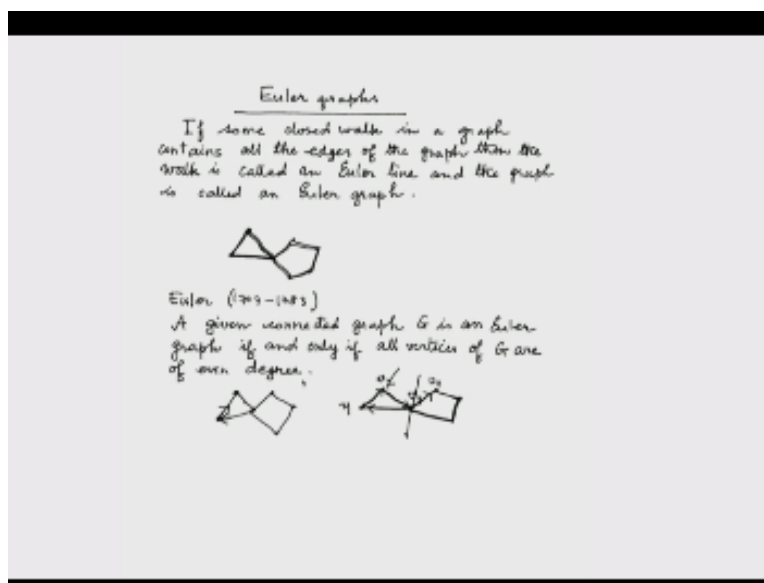 Euler graphs
If some closed walk in a graph
contains all the edges of the graph then the
walk is called an Euler line and the graph
is called an Euler graph.
Euler (1707-1783)
A given connected graph G is an Euler
graph if and only if all vertices of G are
of even degree.